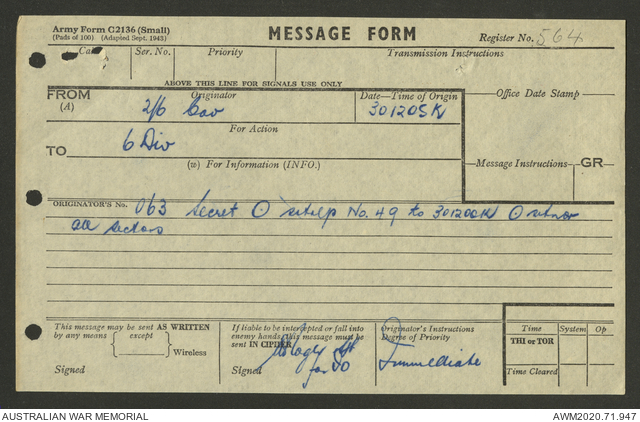 Army Form C2136 (Small)
(Pads of 100) (Adapted Sept. 1945)
MESSAGE FORM
Register No. 564
Call
Ser. No.
Priority
Transmission Instructions
ABOVE THIS LINE FOR SIGNALS USE ONLY
FROM
(A)
Originator
2/6 Cav
Date—Time of Origin
301205K
Office Date Stamp
For Action
TO
6 Div
(W) For Information (INFO.)
Message Instructions
GR
ORIGINATOR'S No. 063 Secret O sitrep No. 49 to 301200K O sitnor
all sectors
This message may be sent AS WRITTEN
by any means except
Wireless
Signed
If liable to be intercepted or fall into
enemy hands, this message must be
sent IN CIPHER
Signed
for IO
Originator's Instructions
Degree of Priority
Immediate
Time
System
Op
THI or TOR
Time Cleared
AUSTRALIAN WAR MEMORIAL
AWM2020.71.947